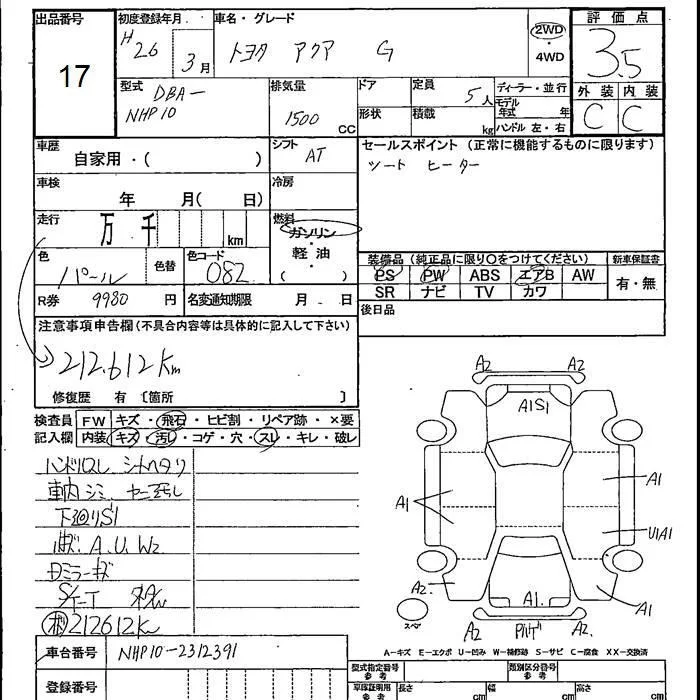 出品番号
17
初度登録年月
H 26
3月
車名・グレード
トヨタ アクア G
2WD
・
4WD
評価点
3.5
型式
DBA-
NHP10
排気量
1500
CC
ドア
形状
定員
5人
積載
kg
ディーラー・並行
モデル
年式 年
ハンドル 左・右
外装 内装
C C
車歴
自家用・( )
シフト
AT
セールスポイント (正常に機能するものに限ります)
シート ヒーター
車検
年 月( 日)
冷房
走行
万 千 km
燃料
ガソリン
・
軽油
・
( )
色
パール
色替
色コード
082
装備品 (純正品に限り○をつけてください)
PS PW ABS エアB AW
SR ナビ TV カワ
新車保証書
有・無
R券 9980 円
名変通知期限 月 日
後日品
注意事項申告欄(不具合内容等は具体的に記入して下さい)
212.612Km
修復歴 有 〔箇所 〕
検査員
記入欄
FW キズ・飛石・ヒビ割・リペア跡・×要
内装 キズ・汚レ・コゲ・穴・スレ・キレ・破レ
ハンドルスレ シートヘタリ
車内シミ ヤニ汚レ
下廻りS1
A.U.W2
Dミラーキズ
212612Km
A2 A2
A1S1
A1
A1
U1A1
A2
A1
A1
A2
A2
スペ
A-キズ E-エクボ U-凹み W-補修跡 S-サビ C-腐食 XX-交換済
車台番号
NHP10-2312391
登録番号
型式指定番号
参考
類別区分番号
参考
車庫証明用
参考
長さ cm
幅 cm
高さ cm